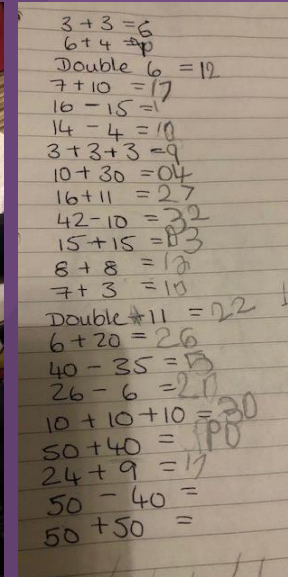 3 + 3 = 6
6 + 4 =
Double 6 = 12
7 + 10 = 17
16 - 15 = 1
14 - 4 = 10
3 + 3 + 3 = 9
10 + 30 = 04
16 + 11 = 27
42 - 10 = 32
15 + 15 = 03
8 + 8 =
7 + 3 = 10
Double 11 = 22
6 + 20 = 26
40 - 35 =
26 - 6 = 20
10 + 10 + 10 = 30
50 + 40 =
24 + 9 =
50 - 40 =
50 + 50 =